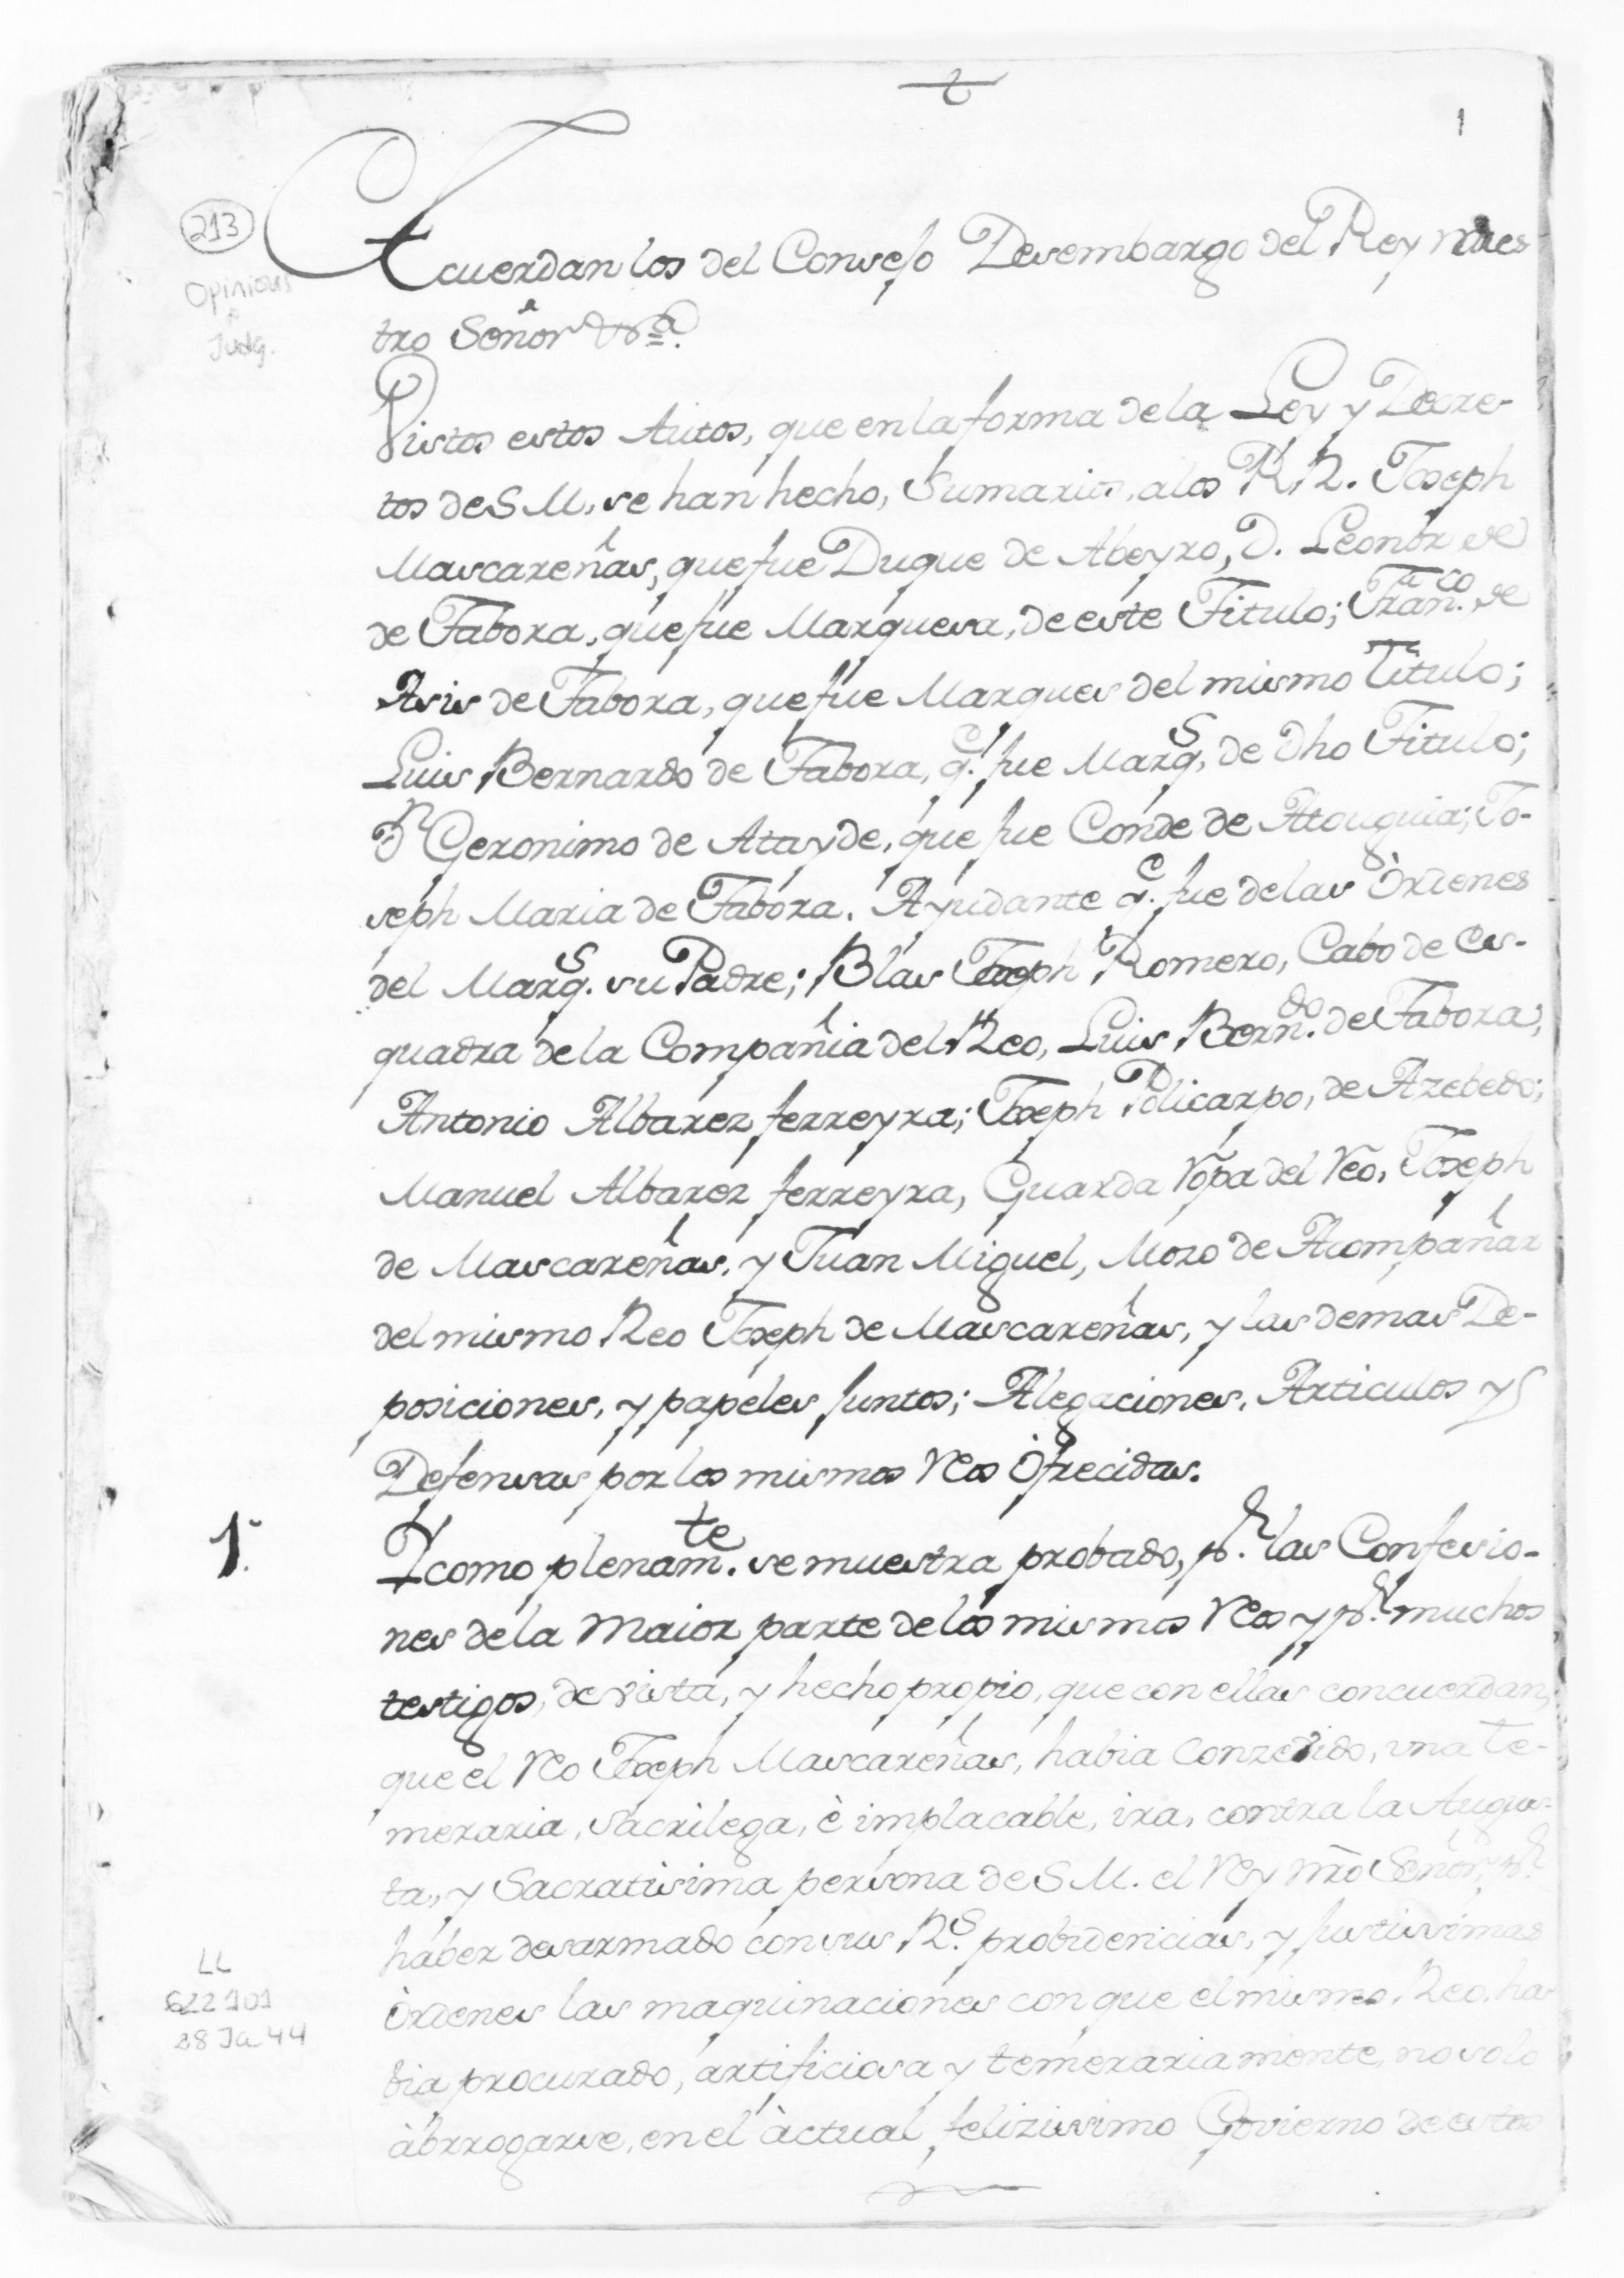 1
213
Opinions
Judg.
Acuerdan los del Consejo Desembargo del Rey nues
tro Señor &ra.
Vistos estos Autos, que en la forma de la Ley y Decre-
tos de S M, se han hecho, Sumarios, a los RR. Joseph
Mascareñas, que fue Duque de Abeyro, D. Leonor de
de Tabora, que fue Marquesa, de este Titulo; Franco. de
Asis de Tabora, que fue Marques del mismo Titulo;
Luis Bernardo de Tabora, q.e fue Marqs, de dho Titulo;
Dn Geronimo de Atayde, que fue Conde de Atouguia; Jo-
seph Maria de Tabora, Ayudante q.e fue de las Òrdenes
del Marqs. su Padre; Blas Joseph Romero, Cabo de es-
quadra de la Compañia del Reo, Luis Berndo. de Tabora;
Antonio Albarez ferreyra; Joseph Policarpo, de Azebedo;
Manuel Albarez ferreyra, Guarda ropa del reo, Joseph
de Mascareñas, y Juan Miguel, Mozo de Acompañar
del mismo Reo Joseph de Mascareñas, y las demas De-
posiciones, y papeles juntos; Alegaciones, Articulos y
Defensas por los mismos reos Òfrecidas.
1.
Y como plenamte. se muestra probado, pr. las Confesio-
nes de la maior parte de los mismos reos y pr. muchos
testigos, de vista, y hecho propio, que con ellas concuerdan,
que el reo Joseph Mascareñas, habia conzevido, una te-
meraria, sacrilega, è implacable, ira, contra la Augus-
ta, y Sacratisima persona de S M. el Rey nro Señor, pr.
haber desarmado con sus Rs. probidencias, y justissimas
Òrdenes las maquinaciones con que el mismo Reo, ha-
bia procurado, artificiosa y temerariamente, no solo
àbrrogarse, en el àctual felizissimo Govierno de estos
LL
622101
28 Ja 44